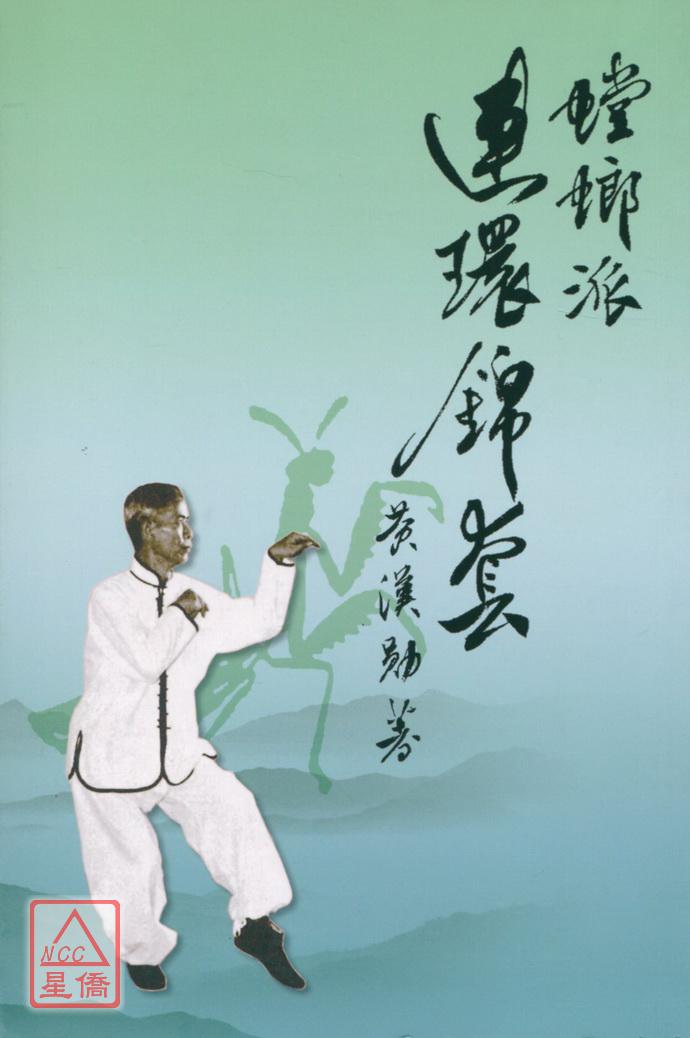 螳螂派
連環錦套
黃漢勛著
NCC
星僑